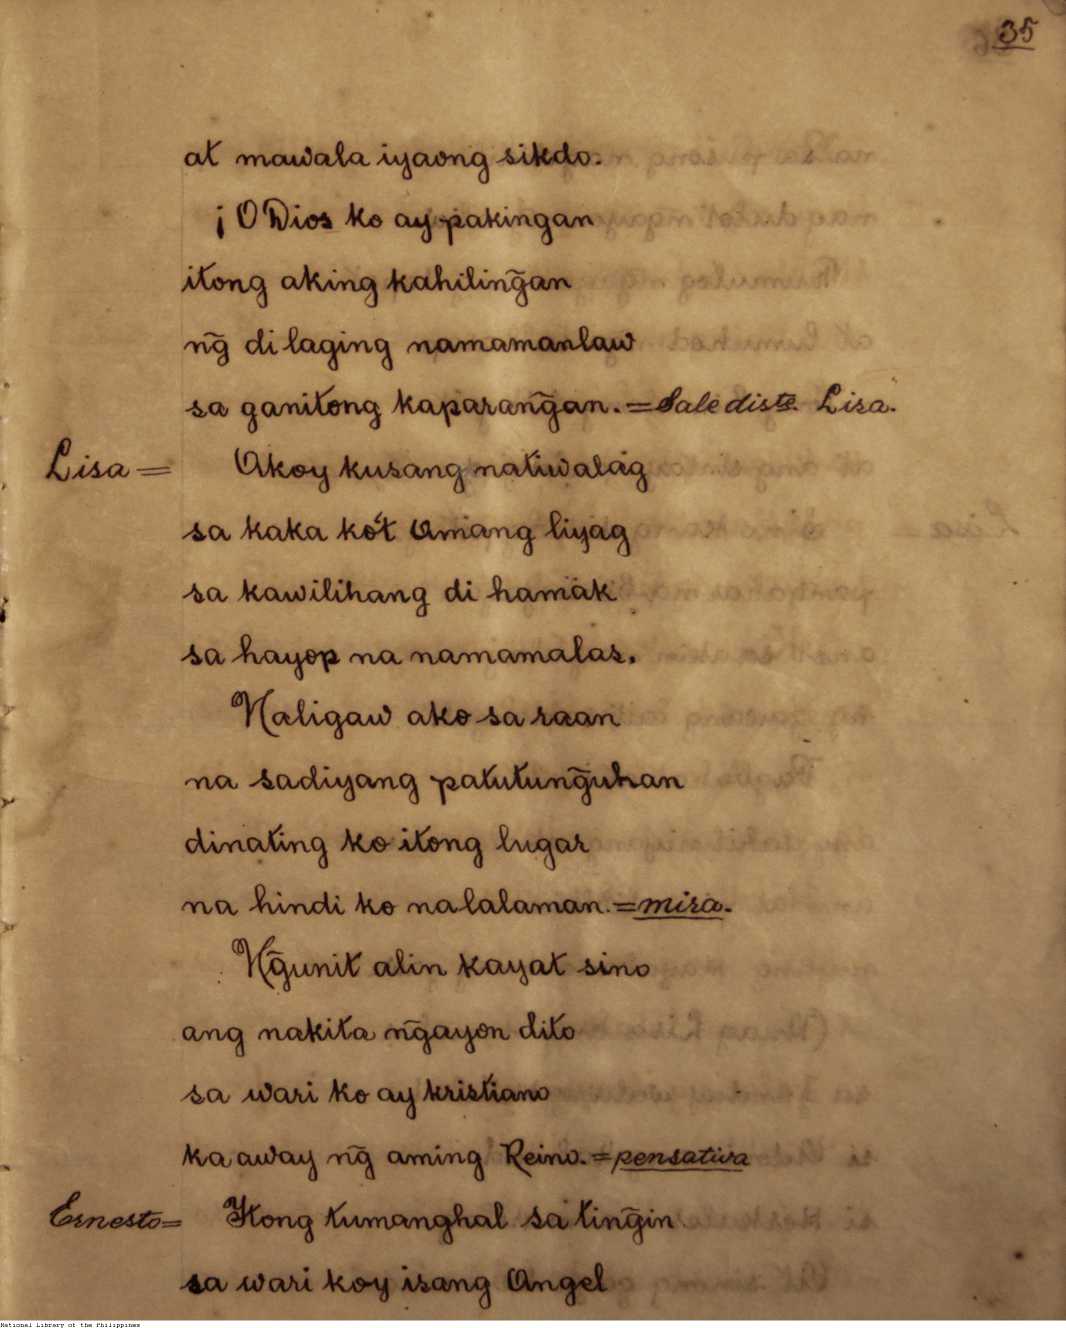 35
at mawala iyaong sikdo.
¡O Dios ko ay pakingan
itong aking kahiling̃an
ng̃ di laging namamanlaw
sa ganitong kaparang̃an.=Sale diste. Lisa.
Lisa= Akoy kusang natiwalág
sa kaka ko't Amang liyag
sa kawilihang di hamak
sa hayop na namamalas.
Naligaw ako sa raan
na sadiyang patutung̃uhan
dinating ko itong lugar
na hindi ko nalalaman.=mira.
Ng̃unit alin kayat sino
ang nakita ng̃ayon dito
sa wari ko ay kristiano
ka away ng̃ aming Reino.=pensativa
Ernesto= Ytong tumanghal sa ting̃in
sa wari koy isang Angel
National Library of the Philippines